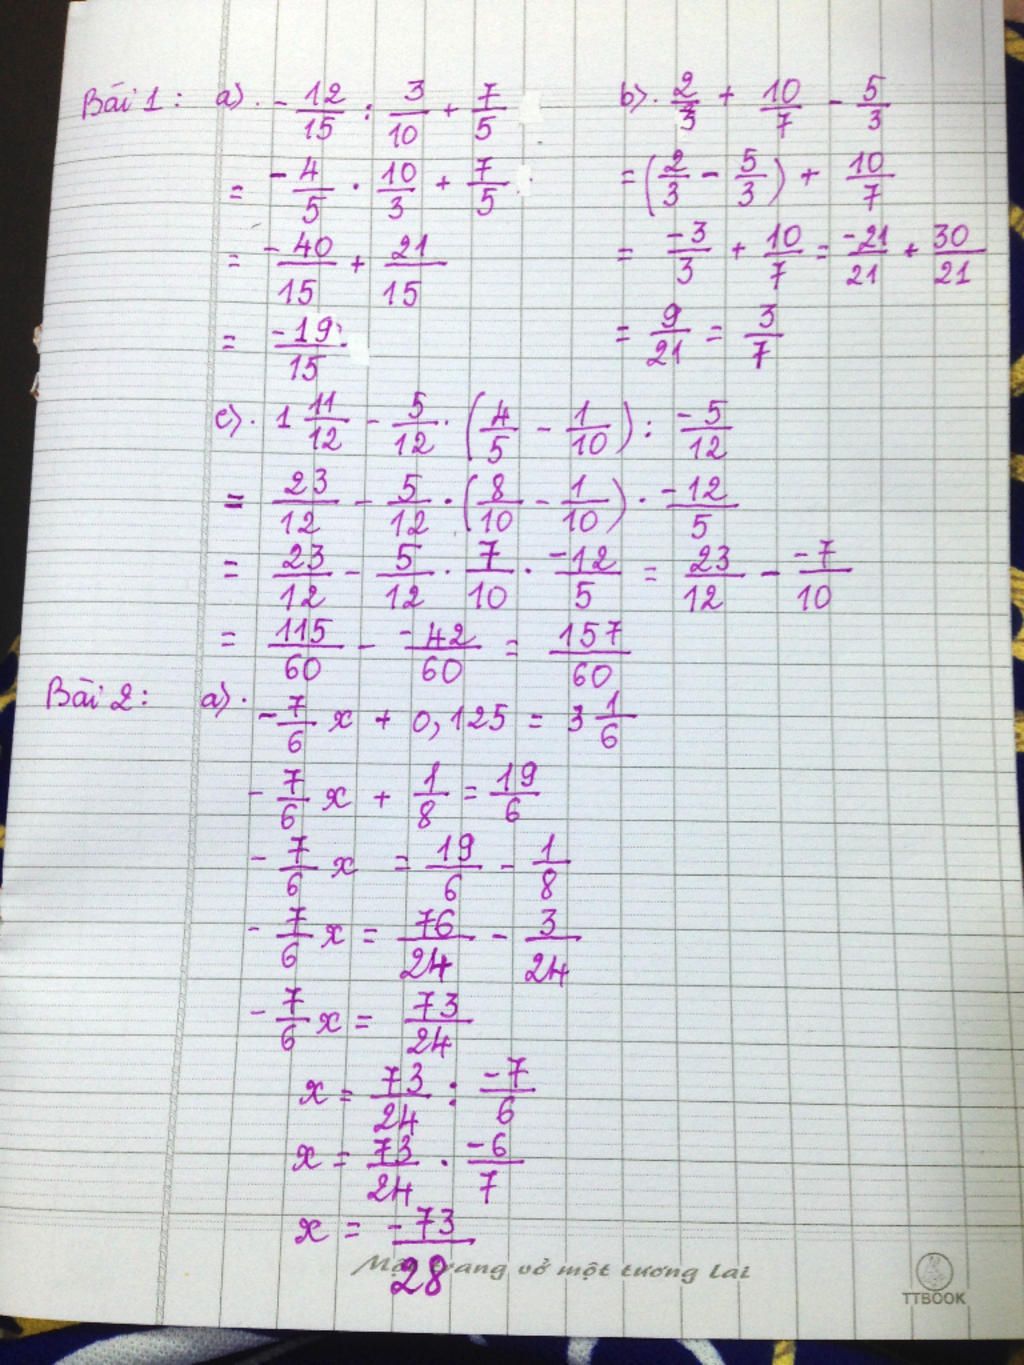 Bài 1: a). -12/15 : 3/10 + 7/5
= -4/5 . 10/3 + 7/5
= -40/15 + 21/15
= -19/15
b). 2/3 + 10/7 - 5/3
= (2/3 - 5/3) + 10/7
= -3/3 + 10/7 = -21/21 + 30/21
= 9/21 = 3/7
c). 1 11/12 - 5/12 . (4/5 - 1/10) : -5/12
= 23/12 - 5/12 . (8/10 - 1/10) . -12/5
= 23/12 - 5/12 . 7/10 . -12/5 = 23/12 - -7/10
= 115/60 - -42/60 = 157/60
Bài 2: a). -7/6 x + 0,125 = 3 1/6
-7/6 x + 1/8 = 19/6
-7/6 x = 19/6 - 1/8
-7/6 x = 76/24 - 3/24
-7/6 x = 73/24
x = 73/24 : -7/6
x = 73/24 . -6/7
x = -73/28
trang vở một tương lai
TTBOOK